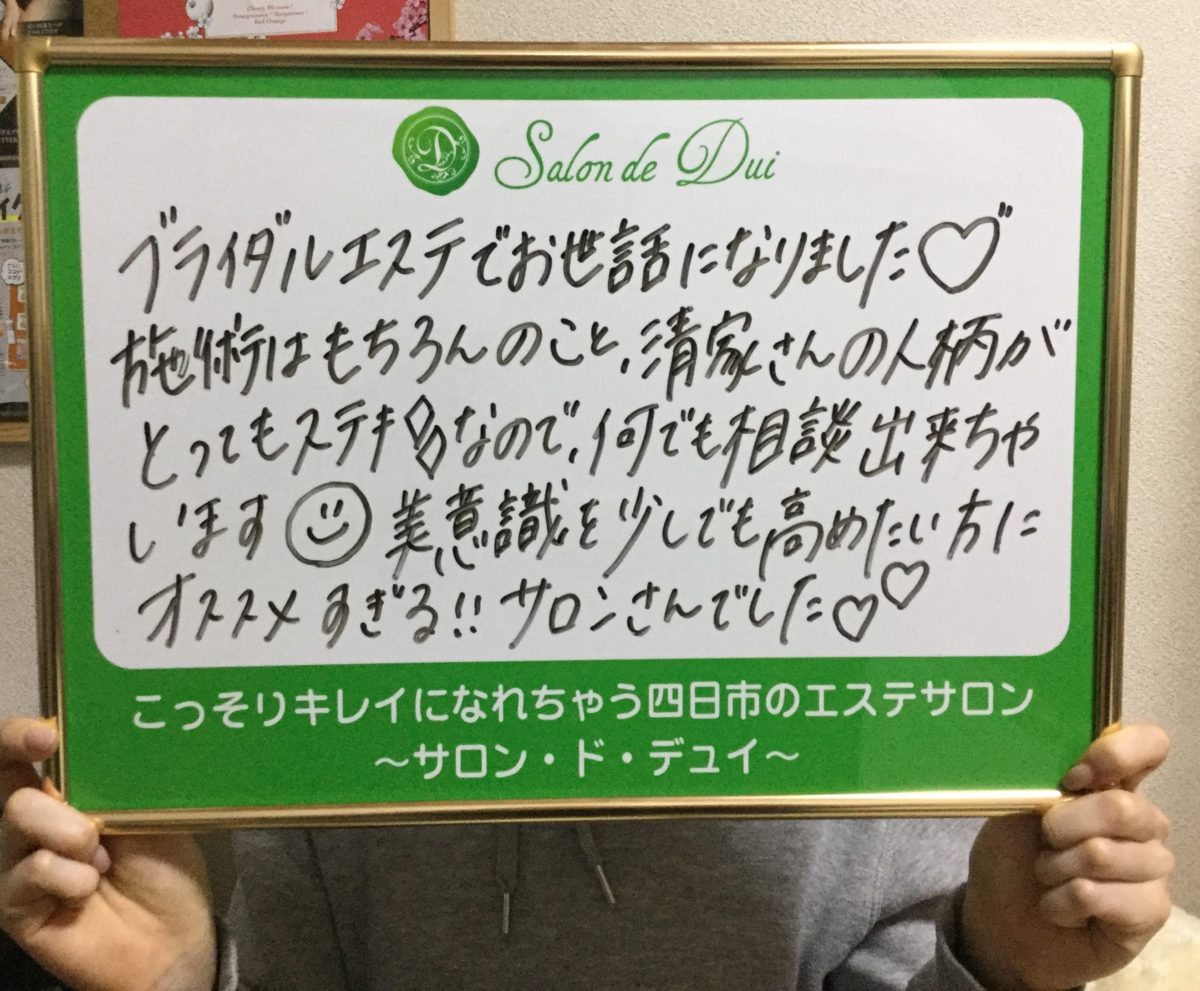 Cherry Blossom /
Pomegranates / Mangosteen /
Red Orange
D
Salon de Dui
ブライダルエステでお世話になりました♡
施術はもちろんのこと、清家さんの人柄が
とってもステキなので、何でも相談出来ちゃ
います☺美意識を少しでも高めたい方に
オススメすぎる!!サロンさんでした♡♡
こっそりキレイになれちゃう四日市のエステサロン
～サロン・ド・デュイ～